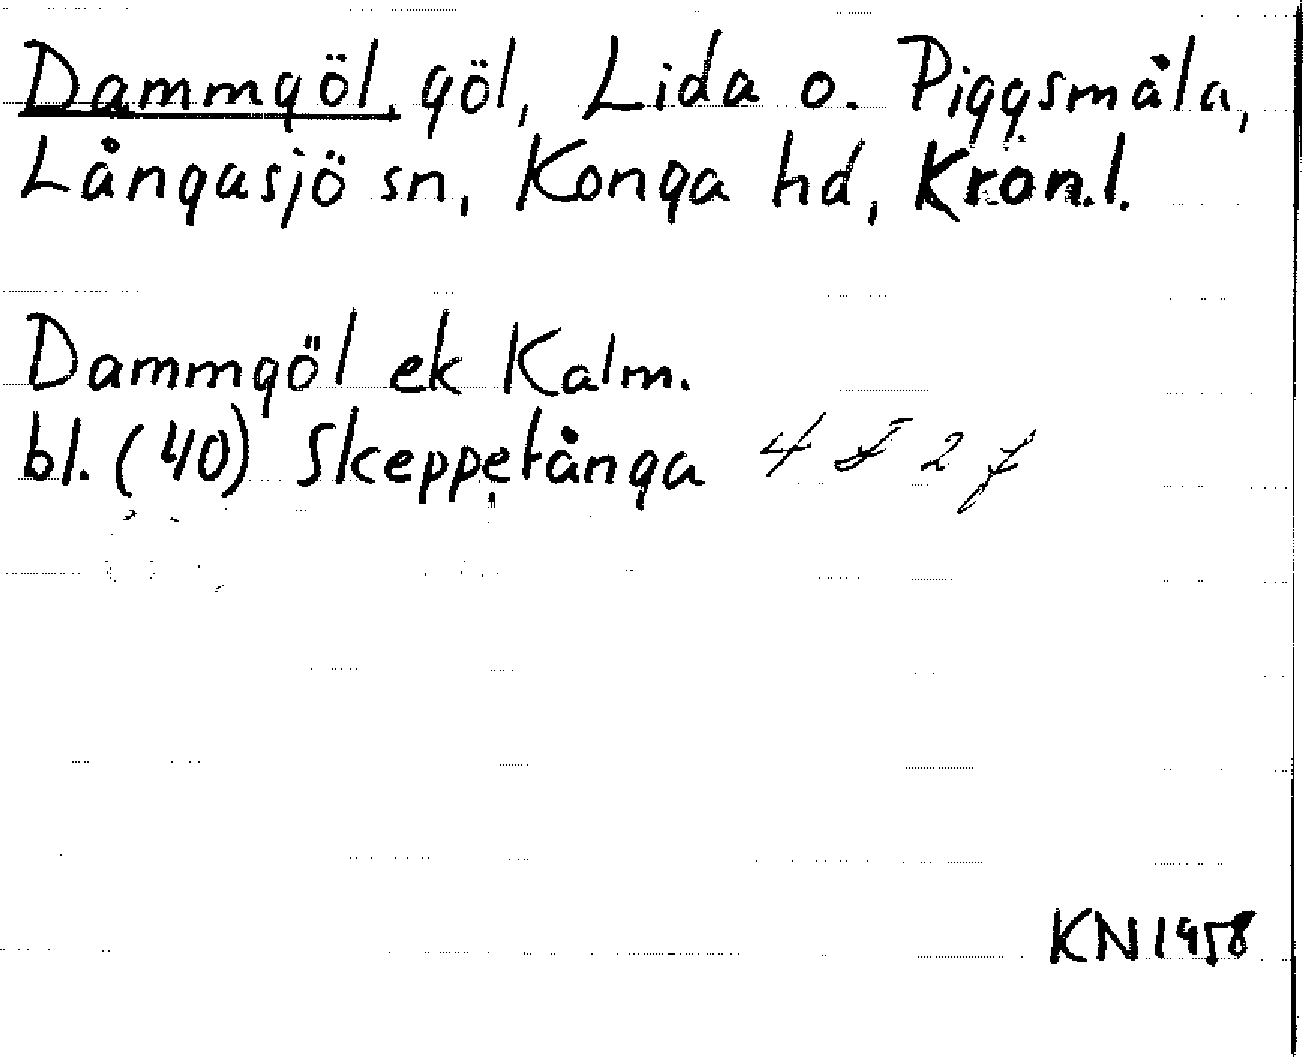 Dammgöl, göl, Lida o. Piggsmåla,
Långasjö sn, Konga hd, Kron.l.
Dammgöl ek Kalm.
bl. (40) Skeppetånga 4 F 2 f
KN 1958